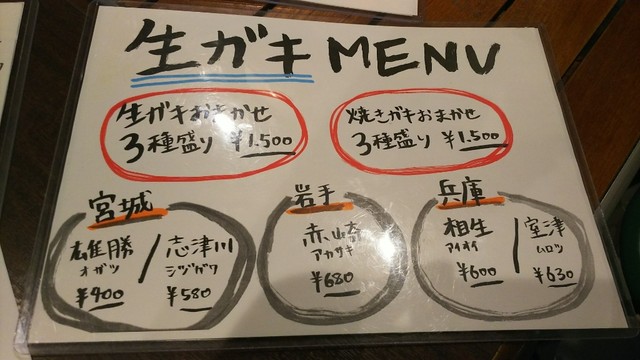 生ガキ MENU
生ガキおまかせ
3種盛り ¥1.500
焼きガキおまかせ
3種盛り ¥1.500
宮城
雄勝 / 志津川
オガツ シヅガワ
¥400 ¥580
岩手
赤崎
アカサキ
¥680
兵庫
相生 / 室津
アイオイ ムロツ
¥600 ¥630